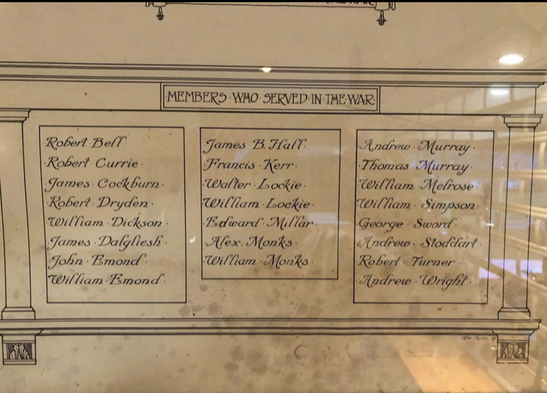 MEMBERS · WHO SERVED · IN THE WAR
Robert Bell
Robert Currie ·
James · Cockburn ·
Robert · Dryden ·
William · Dickson ·
James · Dalgliesh ·
John · Emond ·
William · Emond ·
James B. Hall
Francis · Kerr ·
Walter · Lockie ·
William · Lockie ·
Edward · Millar ·
Alex. Monks ·
William · Monks ·
Andrew · Murray ·
Thomas · Murray ·
William · Melrose
William · Simpson
George · Sword ·
Andrew · Stoddart
Robert · Turner
Andrew · Wright ·